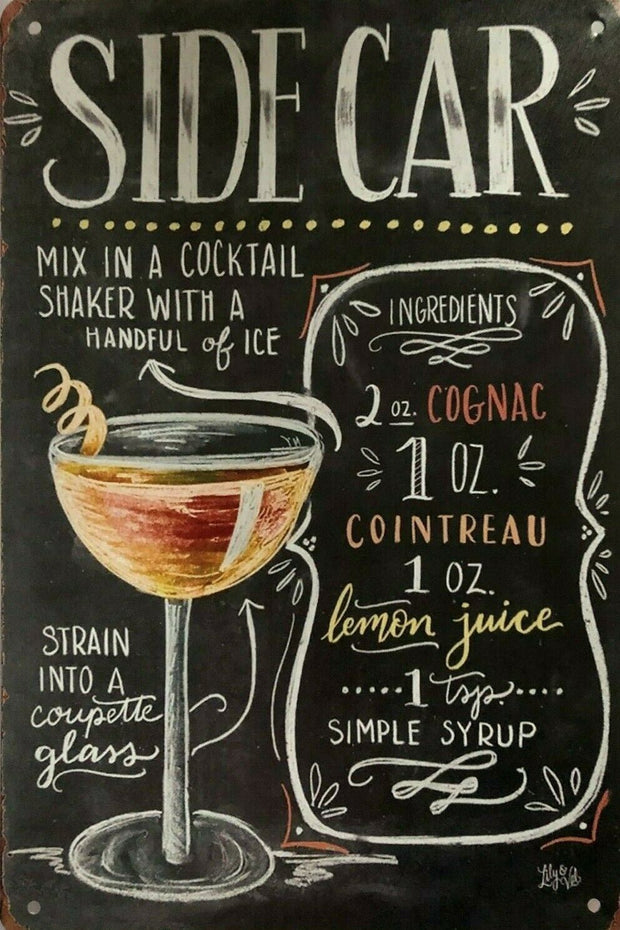 SIDE CAR
MIX IN A COCKTAIL
SHAKER WITH A
HANDFUL of ICE
INGREDIENTS
2 oz. COGNAC
1 OZ.
COINTREAU
1 OZ.
lemon juice
1 tsp.
SIMPLE SYRUP
STRAIN
INTO A
coupette
glass
YM
Lily & Val